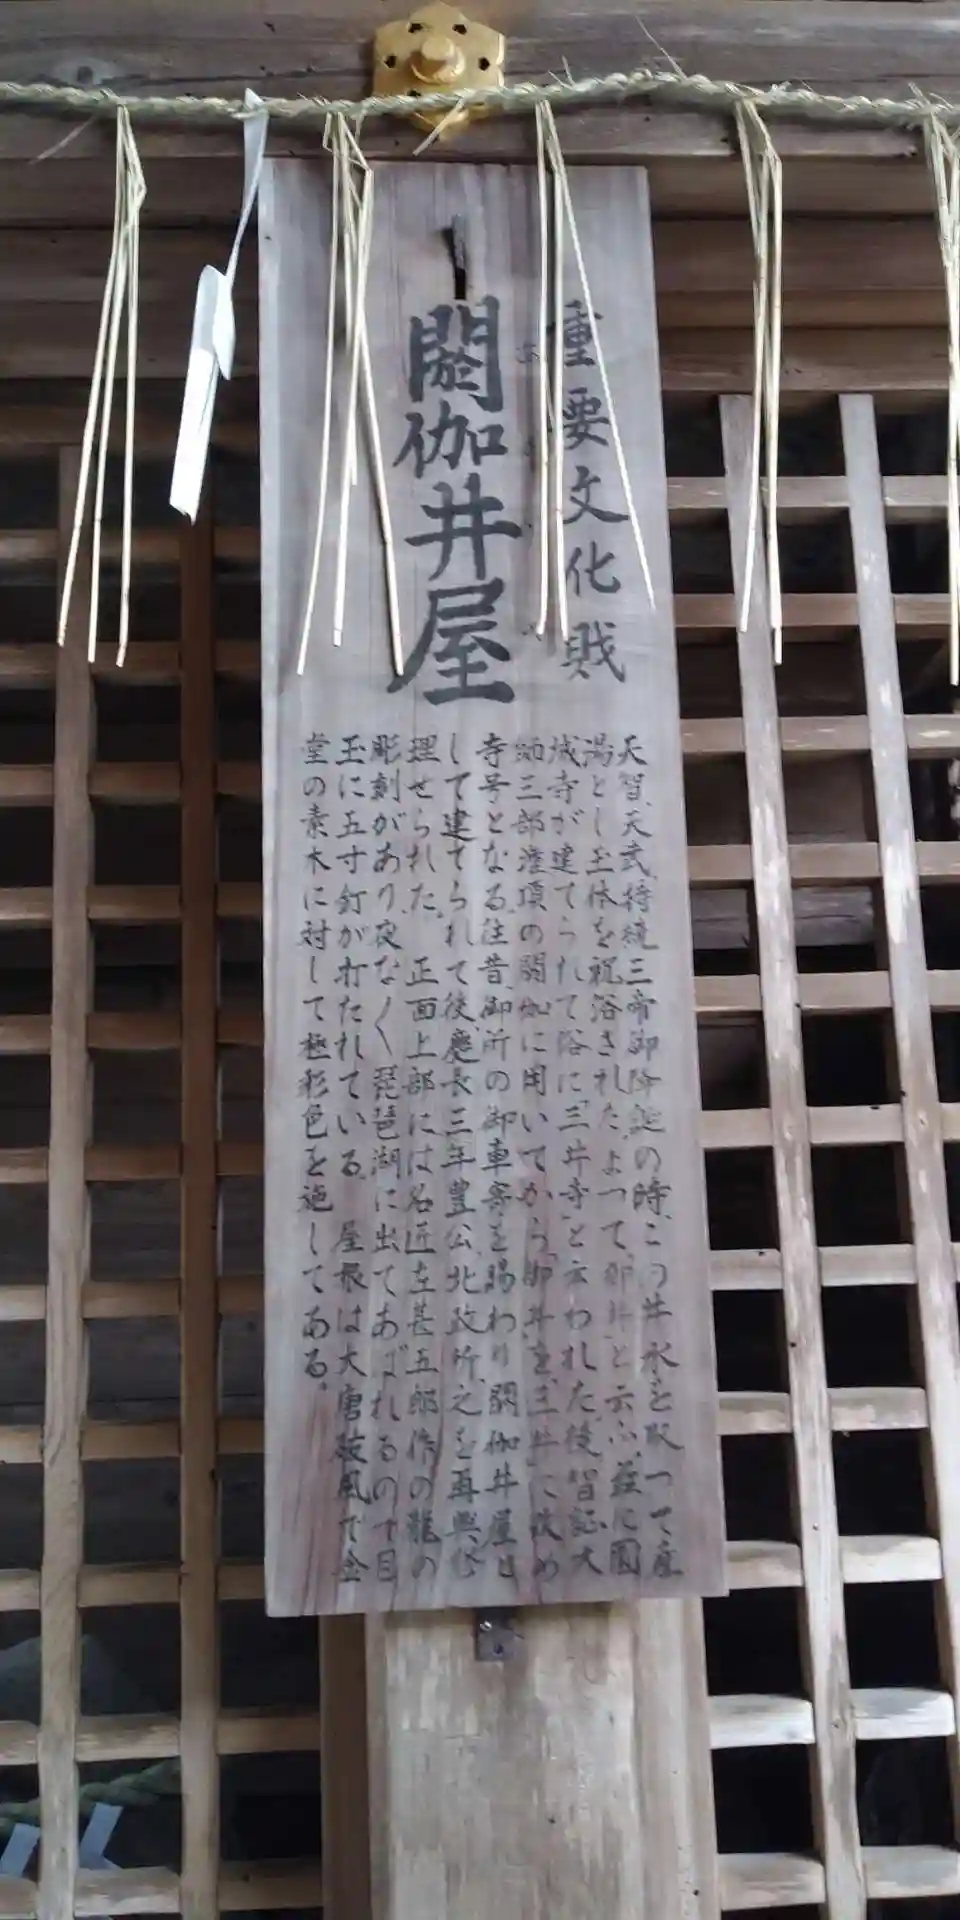 重要文化財
閼伽井屋
天智、天武、持統三帝御降誕の時、この井水を取って産
湯とし玉体を祝浴された。よって「御井」と云ふ、茲に園
城寺が建てられて俗に「三井寺」と云われた後、智証大
師三部潅頂の閼伽に用いてから「御井」を「三井」に改め
寺号となる。往昔、御所の御車寄を賜わり閼伽井屋と
して建てられて後、慶長三年豊公、北政所、之を再興、修
理せられた。正面上部には名匠左甚五郎作の龍の
彫刻があり、夜な〱琵琶湖に出てあばれるので目
玉に五寸釘が打たれている。屋根は大唐破風で金
堂の素木に対して極彩色を施してある。